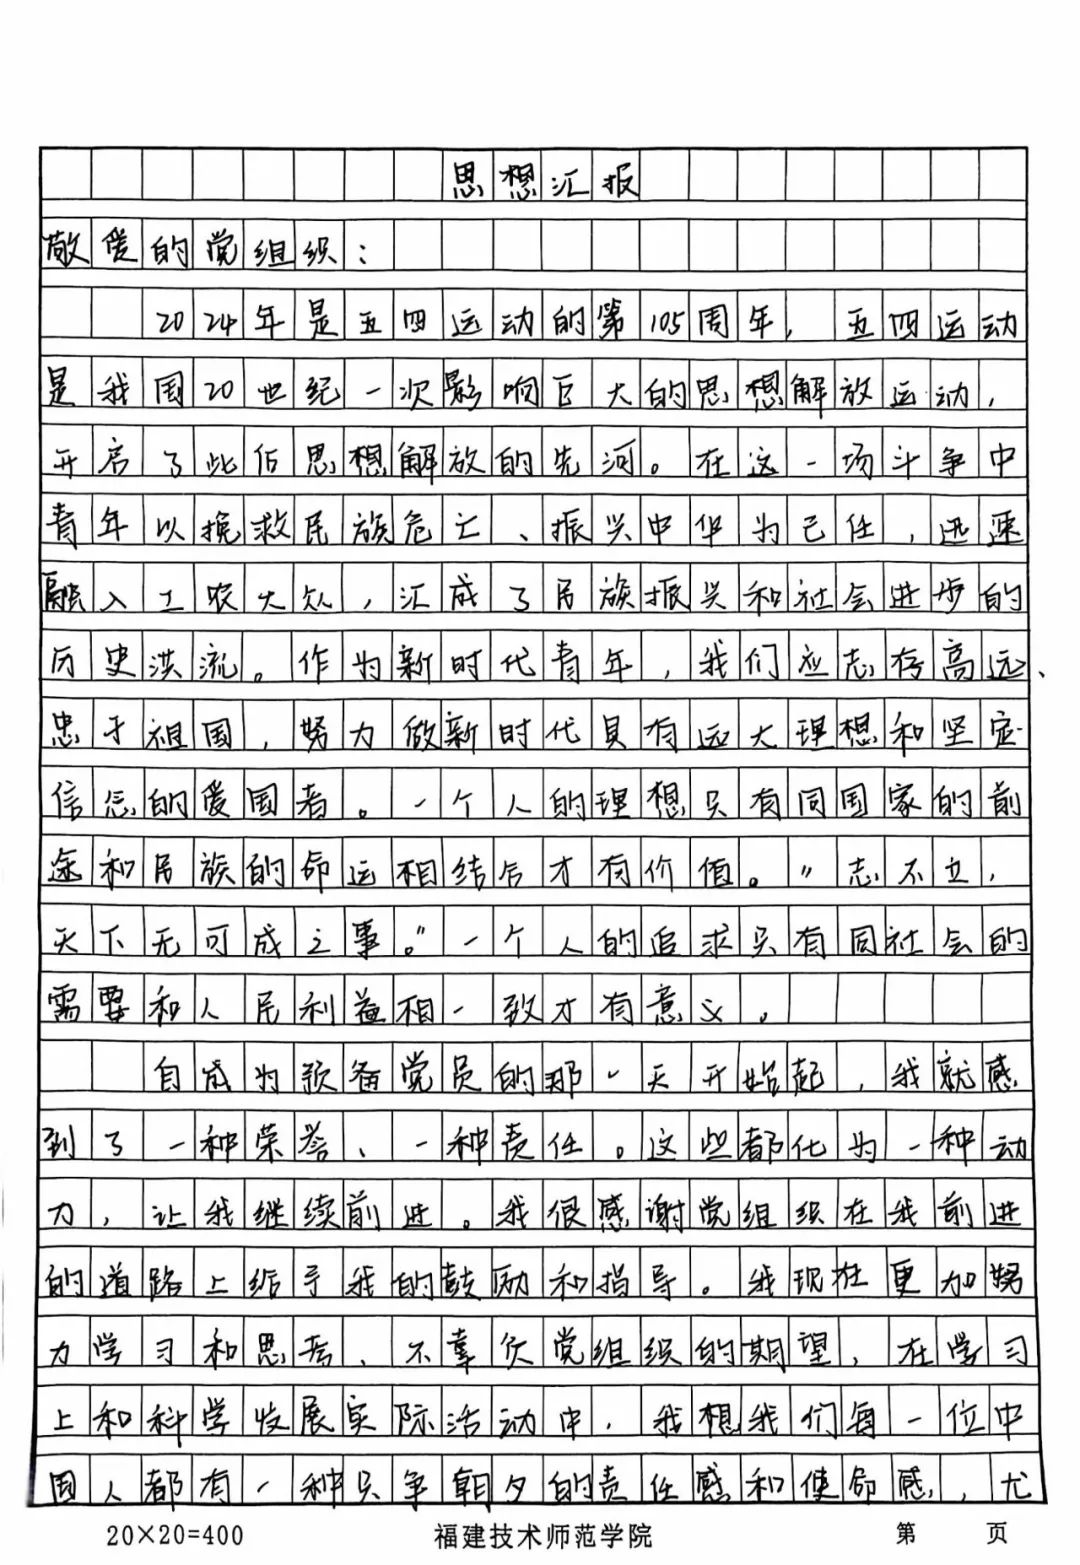 思想汇报
敬爱的党组织：
2024年是五四运动的第105周年，五四运动
是我国20世纪一次影响巨大的思想解放运动，
开启了此后思想解放的先河。在这一场斗争中
青年以挽救民族危亡、振兴中华为己任，迅速
融入工农大众，汇成了民族振兴和社会进步的
历史洪流。作为新时代青年，我们应志存高远、
忠于祖国，努力做新时代具有远大理想和坚定
信念的爱国者。一个人的理想只有同国家的前
途和民族的命运相结合才有价值。“志不立，
天下无可成之事。”一个人的追求只有同社会的
需要和人民利益相一致才有意义。
自成为预备党员的那一天开始起，我就感
到了一种荣誉、一种责任。这些都化为一种动
力，让我继续前进。我很感谢党组织在我前进
的道路上给予我的鼓励和指导。我现在更加努
力学习和思考、不辜负党组织的期望，在学习
上和科学发展实际活动中，我想我们每一位中
国人都有一种只争朝夕的责任感和使命感，尤
20×20=400 福建技术师范学院 第 页